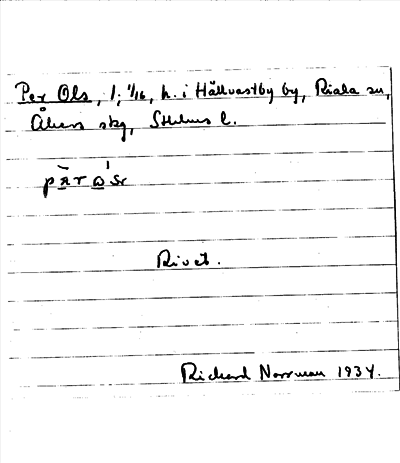 Per Ols, 1; 1/16, h. i Hållvastby by, Riala sn,
Åkers skg, Sthlms l.
Rivet.
Richard Norrman 1934.